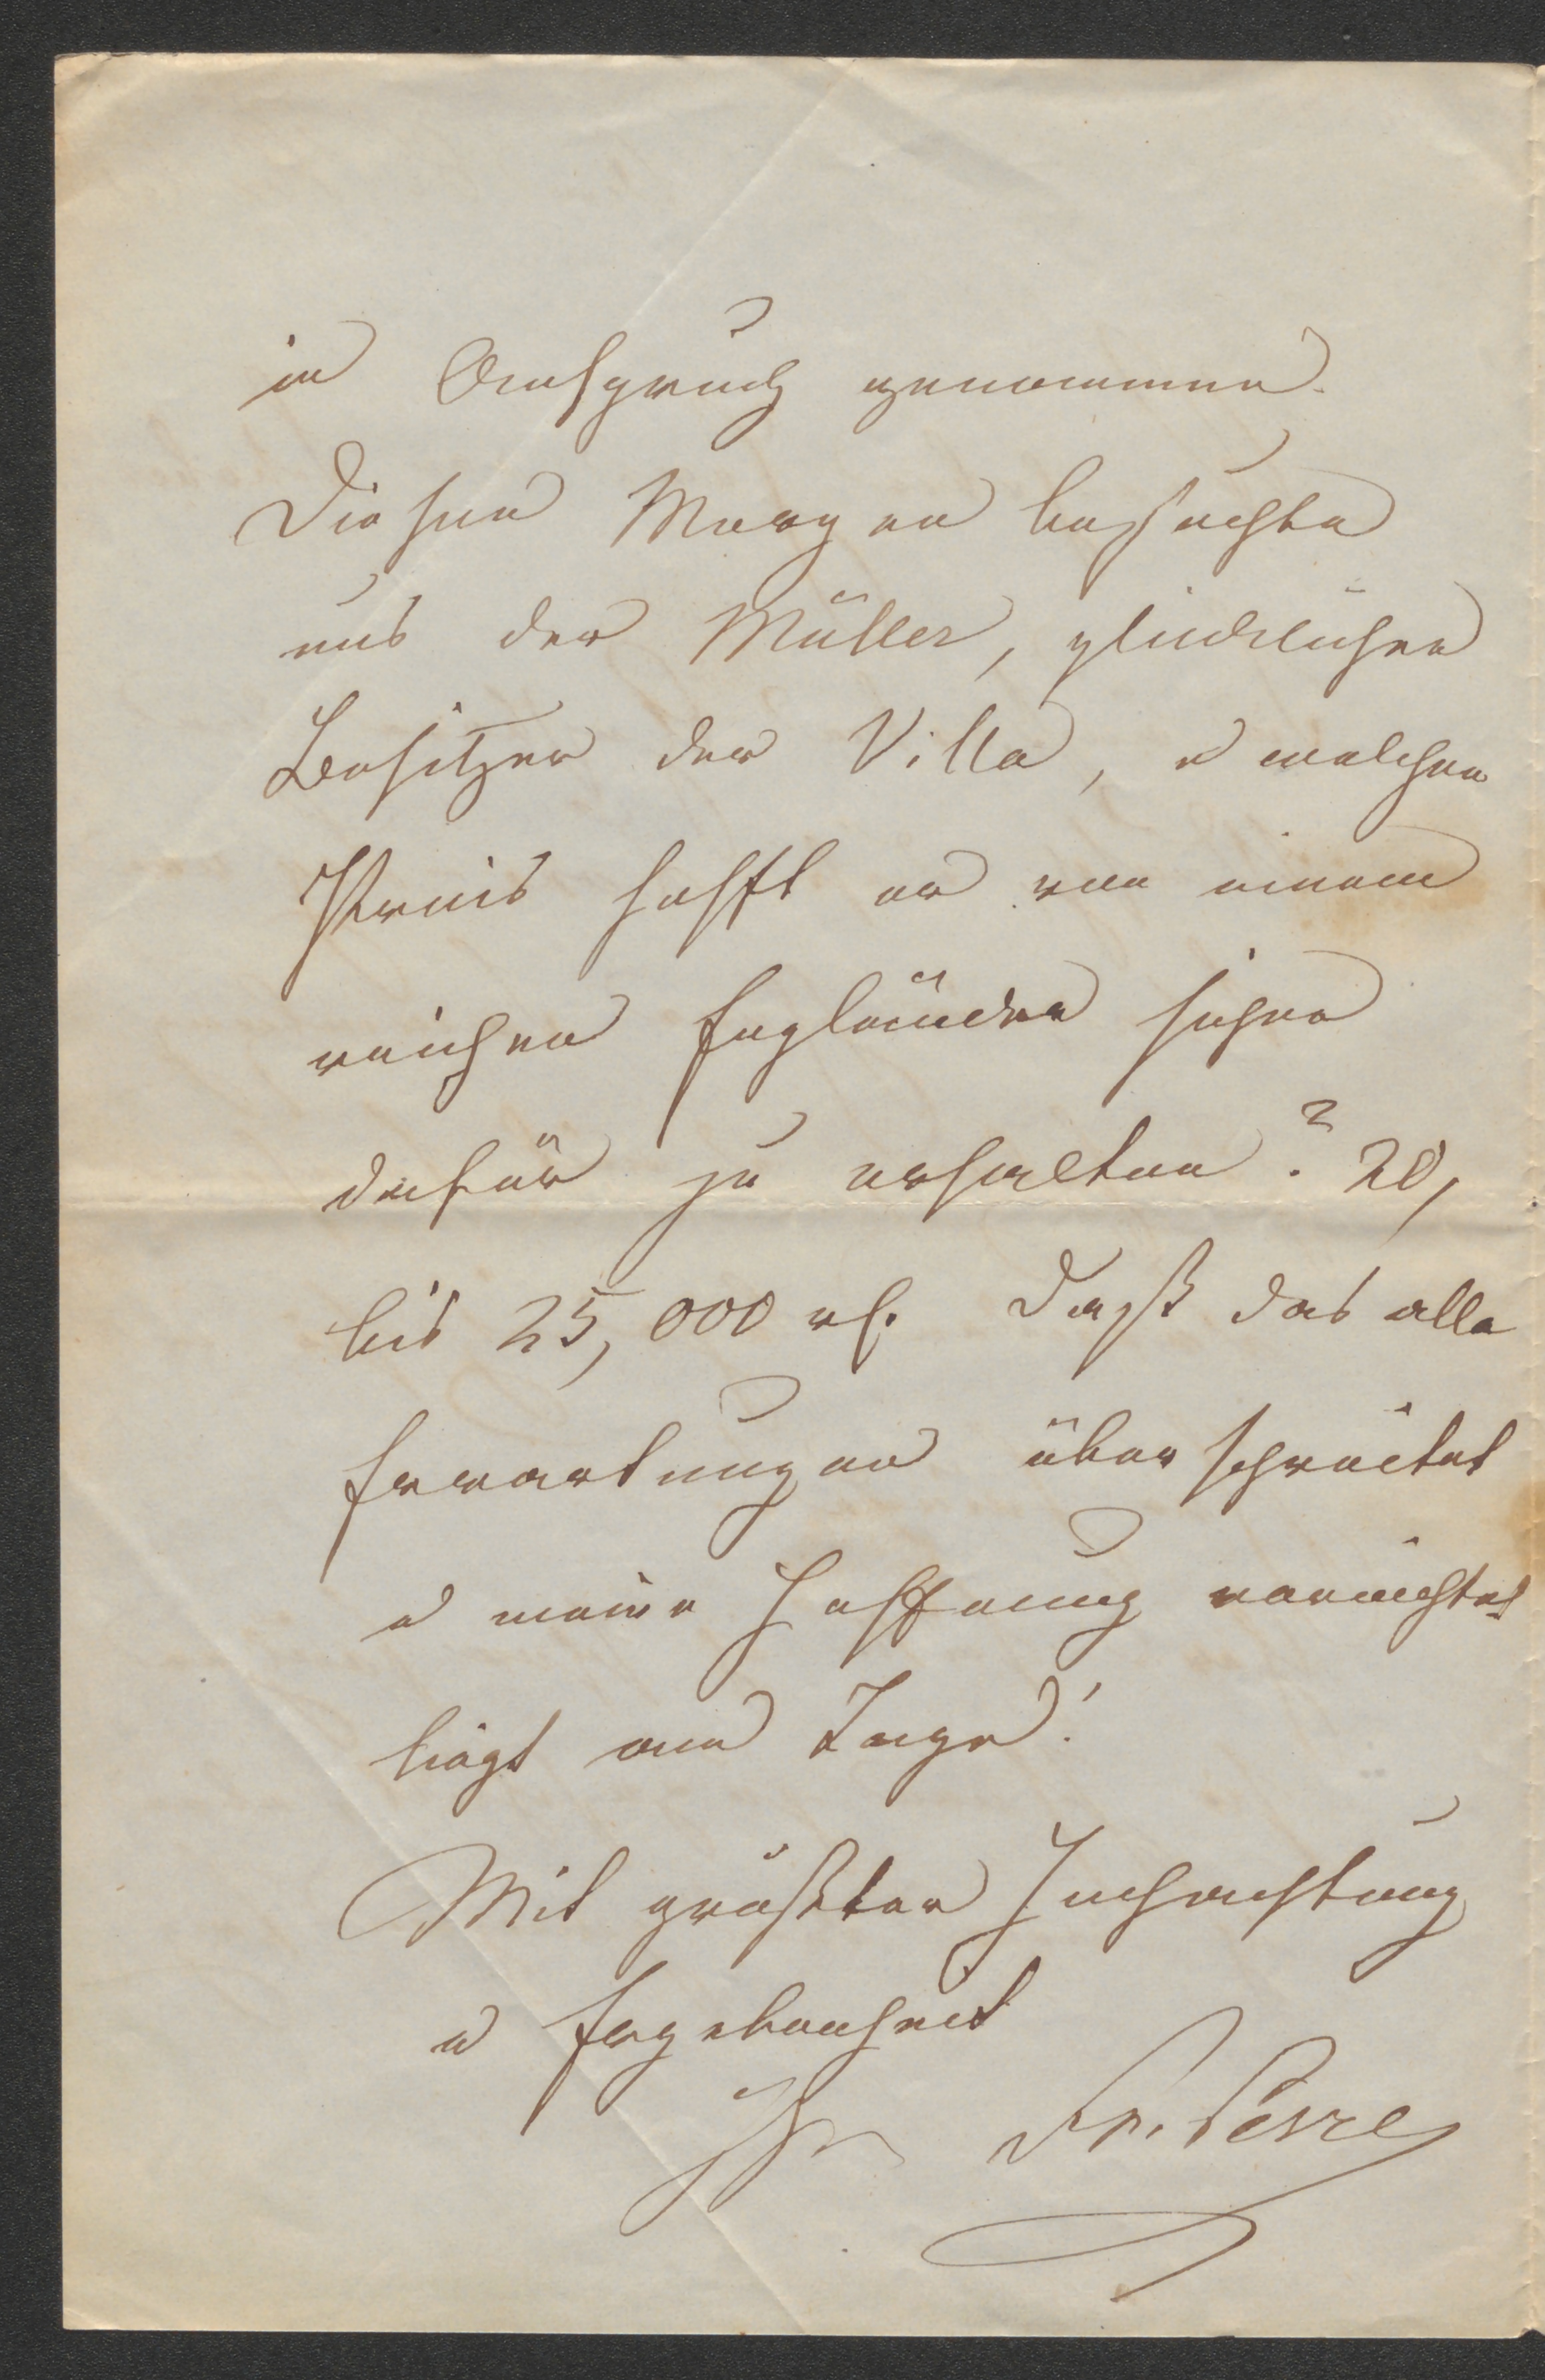 in Anspruch genommen.
Diesen Morgen besuchte
uns der Müller, glücklicher
Besitzer der Villa, u welchen
Preis hofft er von einem
reichen Engländer sicher
dafür zu erhalten? 20,
bis 25,000 rh. Daß das alle
Erwartungen überschreitet
u meine Hoffnung vernichtet
liegt am Tage!
Mit größter Hochachtung
u Ergebenheit
Ihr Fr. Serre